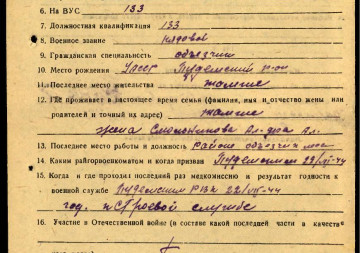 6. На ВУС 133
7. Должностная квалификация 133
8. Военное звание рядовой
9. Гражданская специальность объездчик
10. Место рождения УАССР Пудемский р-он
11. Последнее место жительства
12. Где проживает в настоящее время семья (фамилия, имя и отчество жены или
родителей и точный их адрес)
жена
13. Последнее место работы и должность объездчик
14. Каким райгорвоенкоматом и когда призван Пудемским 22/VII-44
15. Когда и где проходил последний раз медкомиссию и результат годности к
военной службе Пудемским РВК 22/VII-44
год. к строевой службе
16. Участие в Отечественной войне (в составе какой последней части в качеств